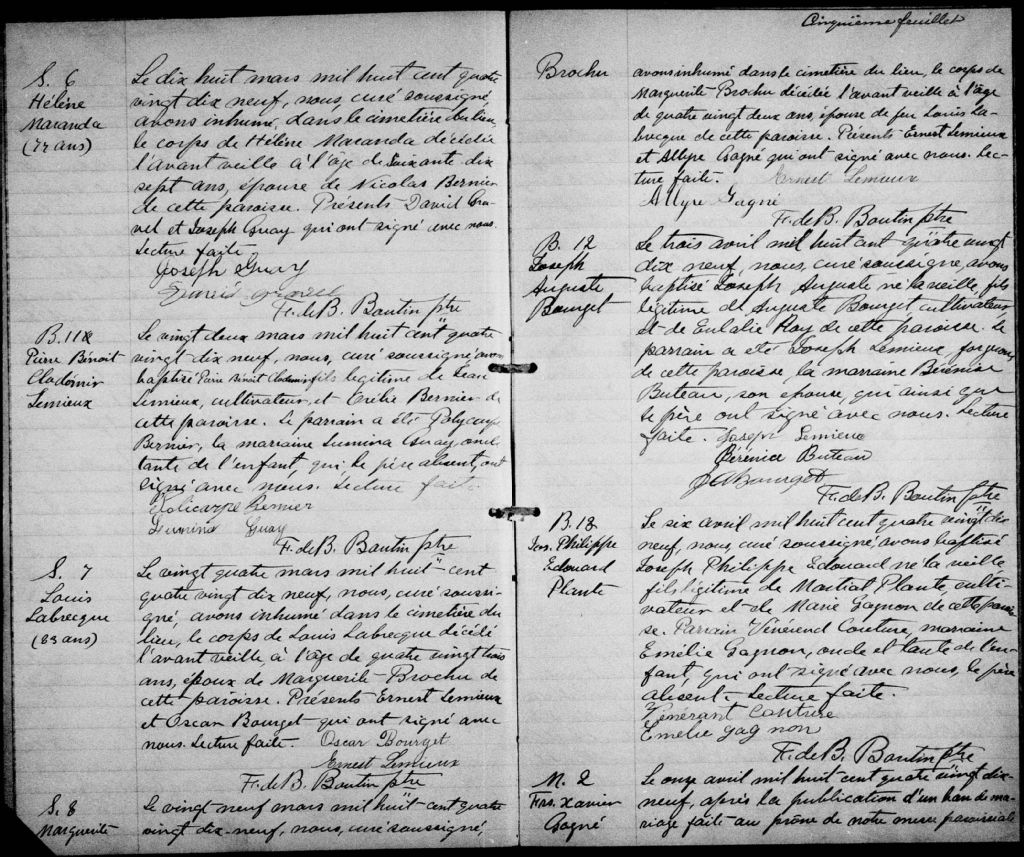 S. 6
Hélène
Maranda
(77 ans)
Le dix huit mars mil huit cent quatre
vingt dix neuf, nous, curé soussigné,
avons inhumé, dans le cimetière du lieu
le corps de Hélène Maranda décédée
l'avant veille à l'âge de soixante dix
sept ans, épouse de Nicolas Bernier
de cette paroisse. Présents David Gra-
vel et Joseph Guay qui ont signé avec nous.
Lecture faite.
Joseph Guay
F. de B. Boutin ptre
B. 11
Pierre Benoit
Clodomir
Lemieux
Le vingt deux mars mil huit cent quatre
vingt dix neuf, nous, curé soussigné, avons
baptisé Pierre Benoit Clodomir fils légitime de Jean
Lemieux, cultivateur, et Exélie Bernier de
cette paroisse. Le parrain a été Polycarpe
Bernier, la marraine Lumina Guay, oncle
tante de l'enfant qui, le père absent, ont
signé avec nous. Lecture faite.
Policarpe Bernier
Lumina Guay
F. de B. Boutin ptre
S. 7
Louis
Labrecque
(83 ans)
Le vingt quatre mars mil huit cent
quatre vingt dix neuf, nous, curé soussi-
gné, avons inhumé dans le cimetière du
lieu, le corps de Louis Labrecque décédé
l'avant veille, à l'âge de quatre vingt trois
ans, époux de Marguerite Brochu de
cette paroisse. Présents Ernest Lemieux
et Oscar Bourget qui ont signé avec
nous. Lecture faite. Oscar Bourget
Ernest Lemieux
F. de B. Boutin ptre
S. 8
Marguerite
Le vingt neuf mars mil huit cent quatre
vingt dix-neuf, nous, curé soussigné,
Cinquième feuillet
Brochu
avons inhumé dans le cimetière du lieu, le corps de
Marguerite Brochu décédée l'avant veille à l'âge
de quatre vingt deux ans, épouse de feu Louis La-
brecque de cette paroisse. Présents Ernest Lemieux
et Allyre Gagné qui ont signé avec nous. Lec-
ture faite. Ernest Lemieux
Allyre Gagné
F. de B. Boutin ptre
B. 12
Joseph
Auguste
Bourget
Le trois avril mil huit cent quatre vingt
dix neuf, nous, curé soussigné, avons
baptisé Joseph Auguste né la veille, fils
légitime de Auguste Bourget, cultivateur
et de Eulalie Roy de cette paroisse. Le
parrain a été Joseph Lemieux, forgeron,
de cette paroisse, la marraine Bérénice
Buteau, son épouse, qui ainsi que
le père ont signé avec nous. Lecture
faite. Joseph Lemieux
Bérénice Buteau
J A Bourget
F. de B. Boutin ptre
B. 13
Jos. Philippe
Edouard
Plante
Le six avril mil huit cent quatre vingt dix
neuf, nous, curé soussigné, avons baptisé
Joseph Philippe Edouard né la veille
fils légitime de Martial Plante, culti-
vateur et de Marie Gagnon de cette parois-
se. Parrain Vénérend Couture, marraine
Emélie Gagnon, oncle et tante de l'en-
fant, qui ont signé avec nous, le père
absent. Lecture faite.
Vénérant Couture
Emelie gagnon
F. de B. Boutin ptre
M. 2
Frs. Xavier
Gagné
Le onze avril mil huit cent quatre vingt dix-
neuf, après la publication d'un ban de ma-
riage faite au prône de notre messe paroissiale